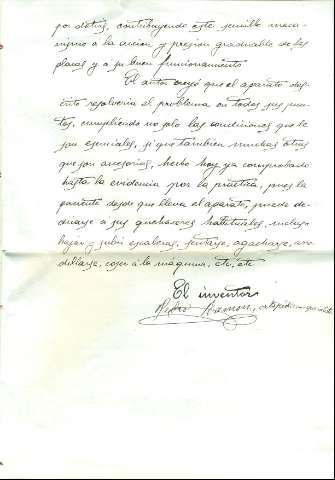 por detras, contribuyendo este sencillo meca-
nismo a la accion y presion graduable de las
placas y a su buen funcionamiento
El autor creyó que el aparato des-
crito resolveria el problema en todos sus pun-
tos, cumpliendo no solo las condiciones que le
son esenciales, si que tambien muchas otras
que son accesorias, hecho hoy ya comprobado
hasta la evidencia por la práctica, pues la
paciente desde que lleva el aparato, puede de-
dicarse a sus quehaceres habituales, incluso
bajar y subir escaleras, sentarse, agacharse, arro-
dillarse, coser á la máquina, etc, etc
El inventor
Pedro Ramon,